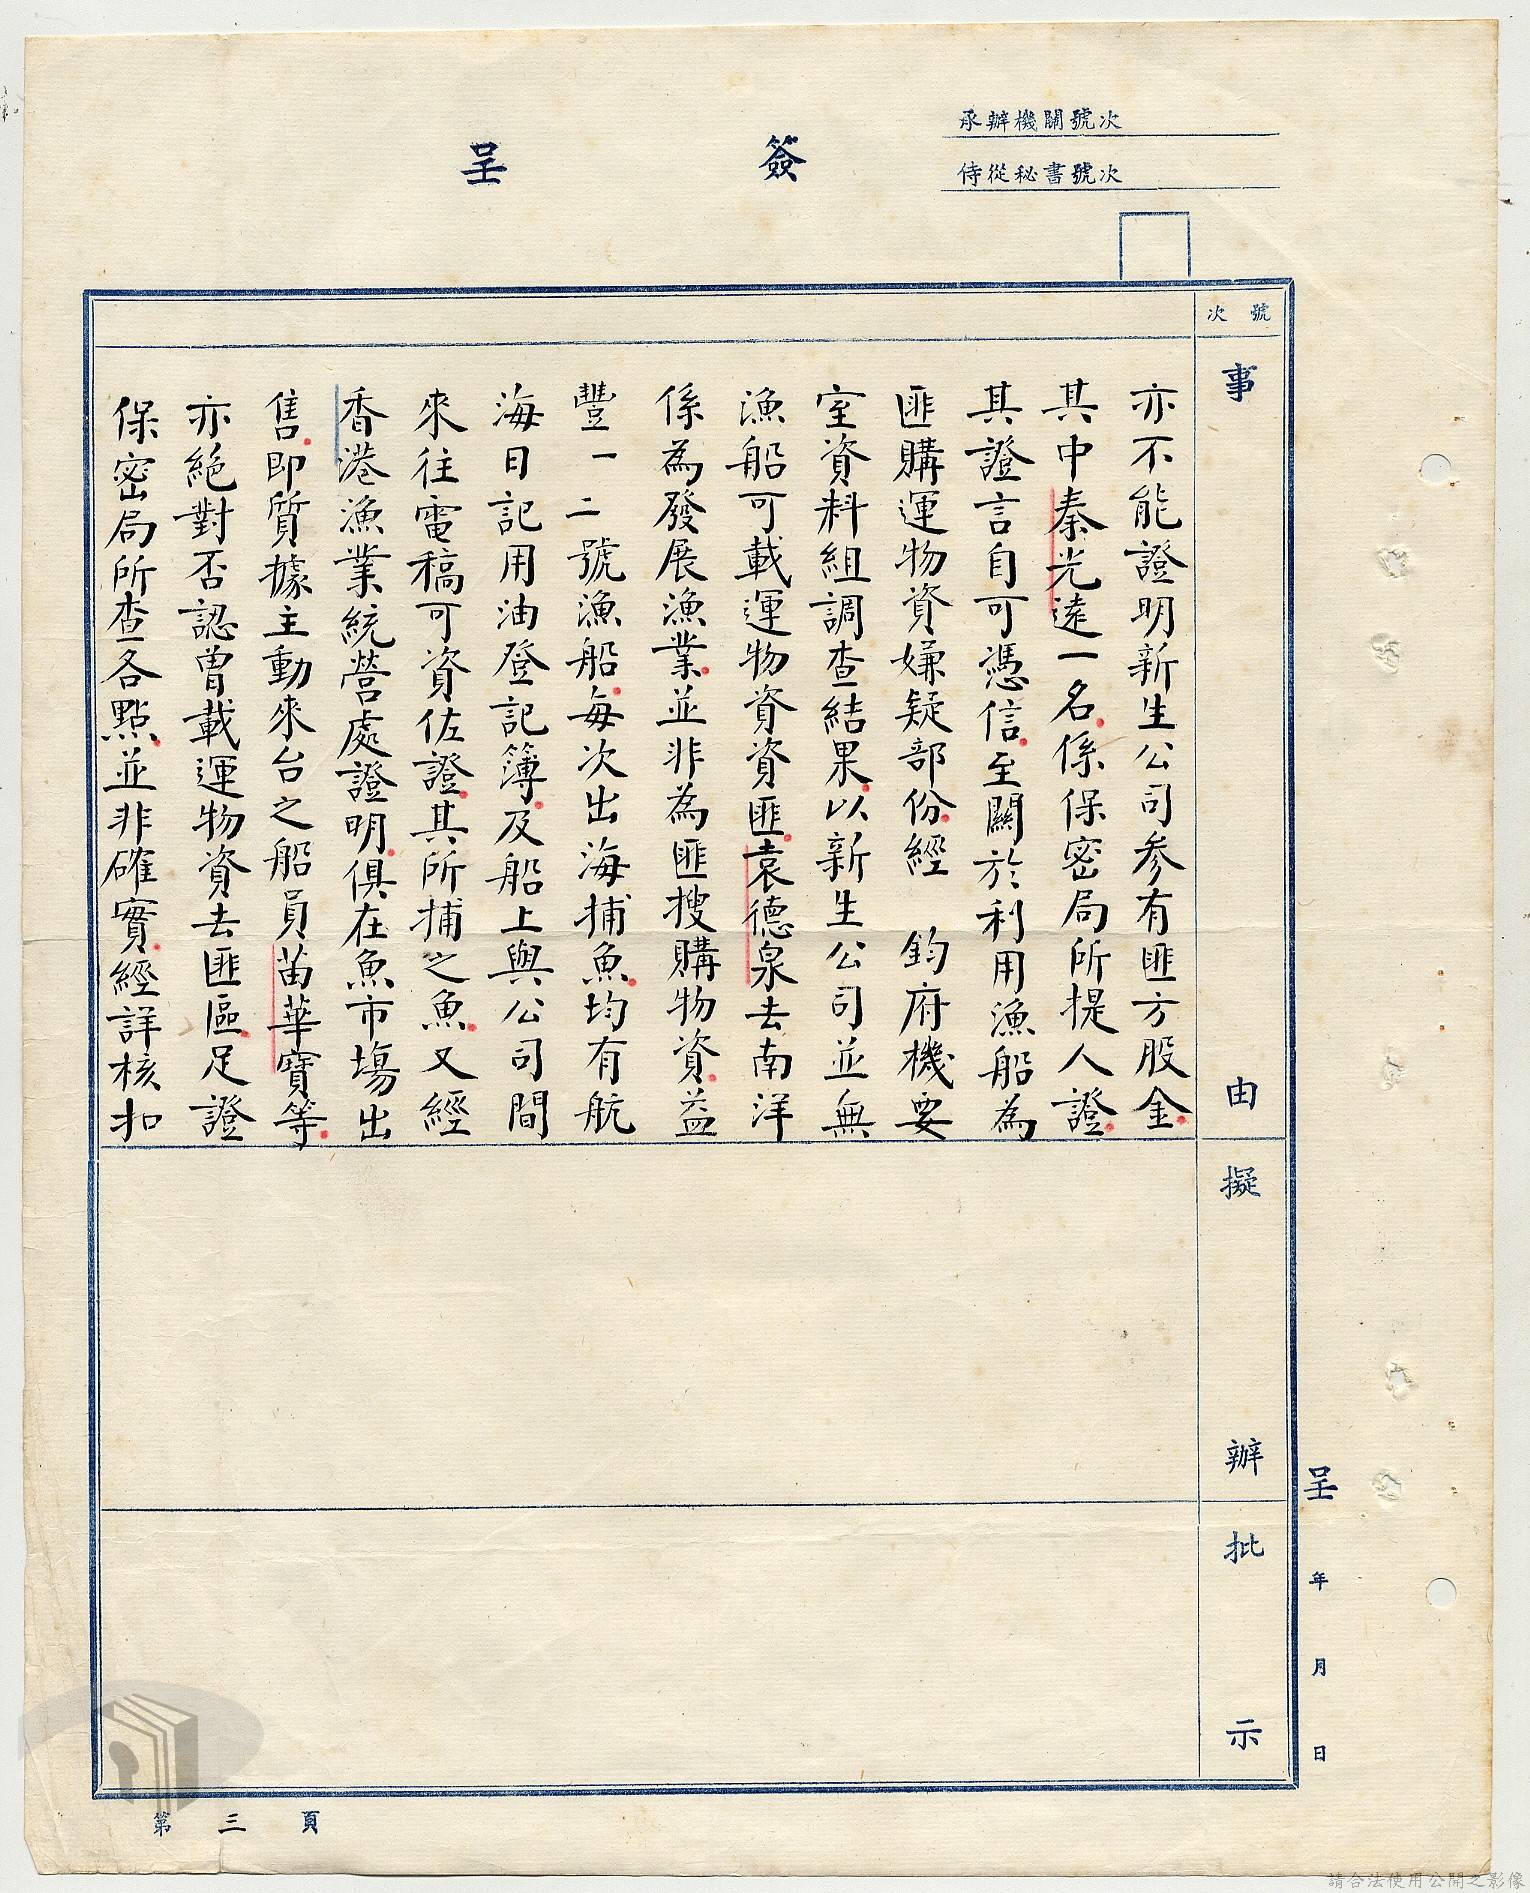 承辦機關號次
侍從秘書號次
簽呈
號次
事由
亦不能證明新生公司參有匪方股金.
其中秦光遠一名.係保密局所提人證.
其證言自可憑信.至關於利用漁船為
匪購運物資嫌疑部份.經 鈞府機要
室資料組調查結果.以新生公司並無
漁船可載運物資資匪.袁德泉去南洋
係為發展漁業.並非為匪搜購物資.益
豐一二號漁船.每次出海捕魚.均有航
海日記用油登記簿.及船上與公司間
來往電稿可資佐證.其所捕之魚.又經
香港漁業統營處證明.俱在魚市場出
售.即質據主動來台之船員苗華寶等.
亦絕對否認曾載運物資去匪區.足證
保密局所查各點.並非確實.經詳核扣
擬辦
批示
呈 年 月 日
第三頁
請合法使用公開之影像